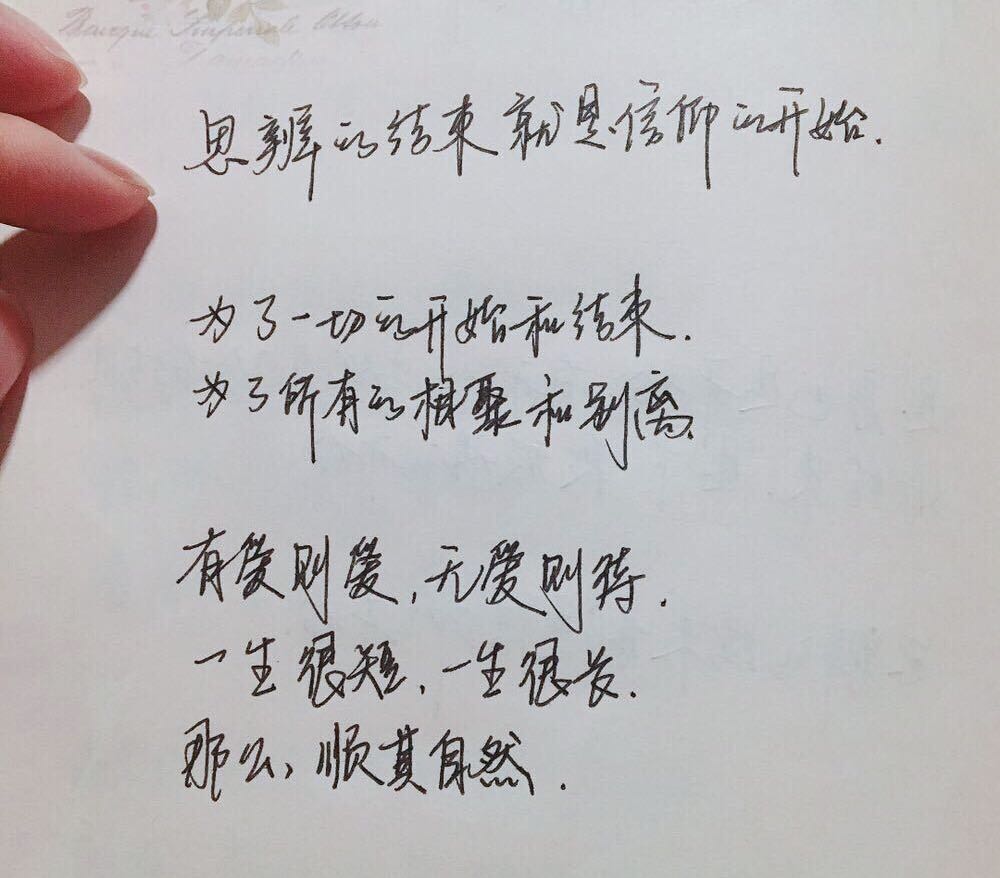 Banque Impériale
思辨的结束就是信仰的开始.
为了一切的开始和结束.
为了所有的相聚和别离.
有爱则爱,无爱则待.
一生很短,一生很长.
那么,顺其自然.